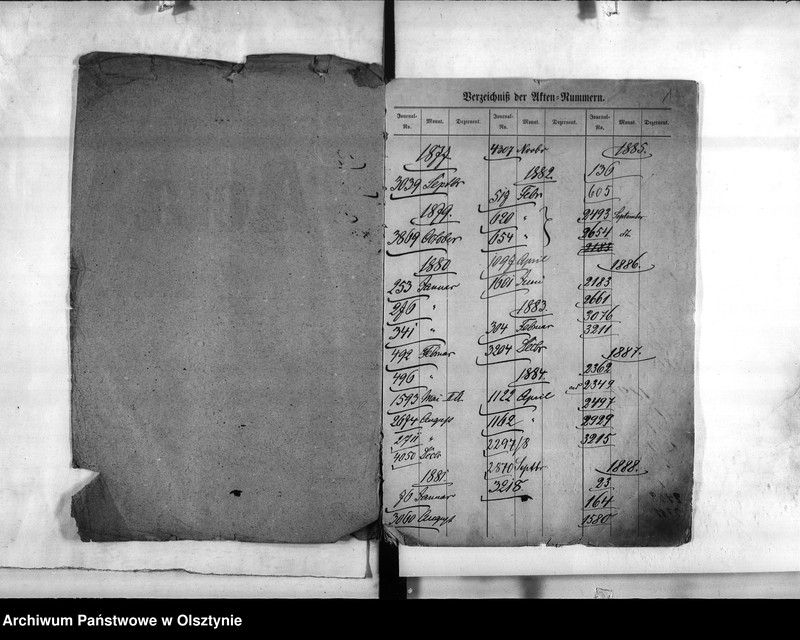 Verzeichniß der Akten-Nummern.
Journal-No. Monat. Dezernent.
Journal-No. Monat. Dezernent.
Journal-No. Monat. Dezernent.
1877
3039 Septbr
1879.
3869 October
1880
253 Januar
276 "
341 "
492 Februar
496 "
1593 Mai
2674 August
2711 "
4050 Decbr
1881.
76 Januar
3060 August
4307 Novbr
1882.
519 Febr
620 "
654 "
1097 April
1601 Juni
1883.
304 Februar
3204 Decbr
1884.
1122 April
1162 "
2297/8
2870 Septbr
3218
1885.
136
605
2493 September
2654
1886.
2183
2661
3076
3211
1887.
2362
2349
2497
2929
3215
1888.
23
164
1580
Archiwum Państwowe w Olsztynie